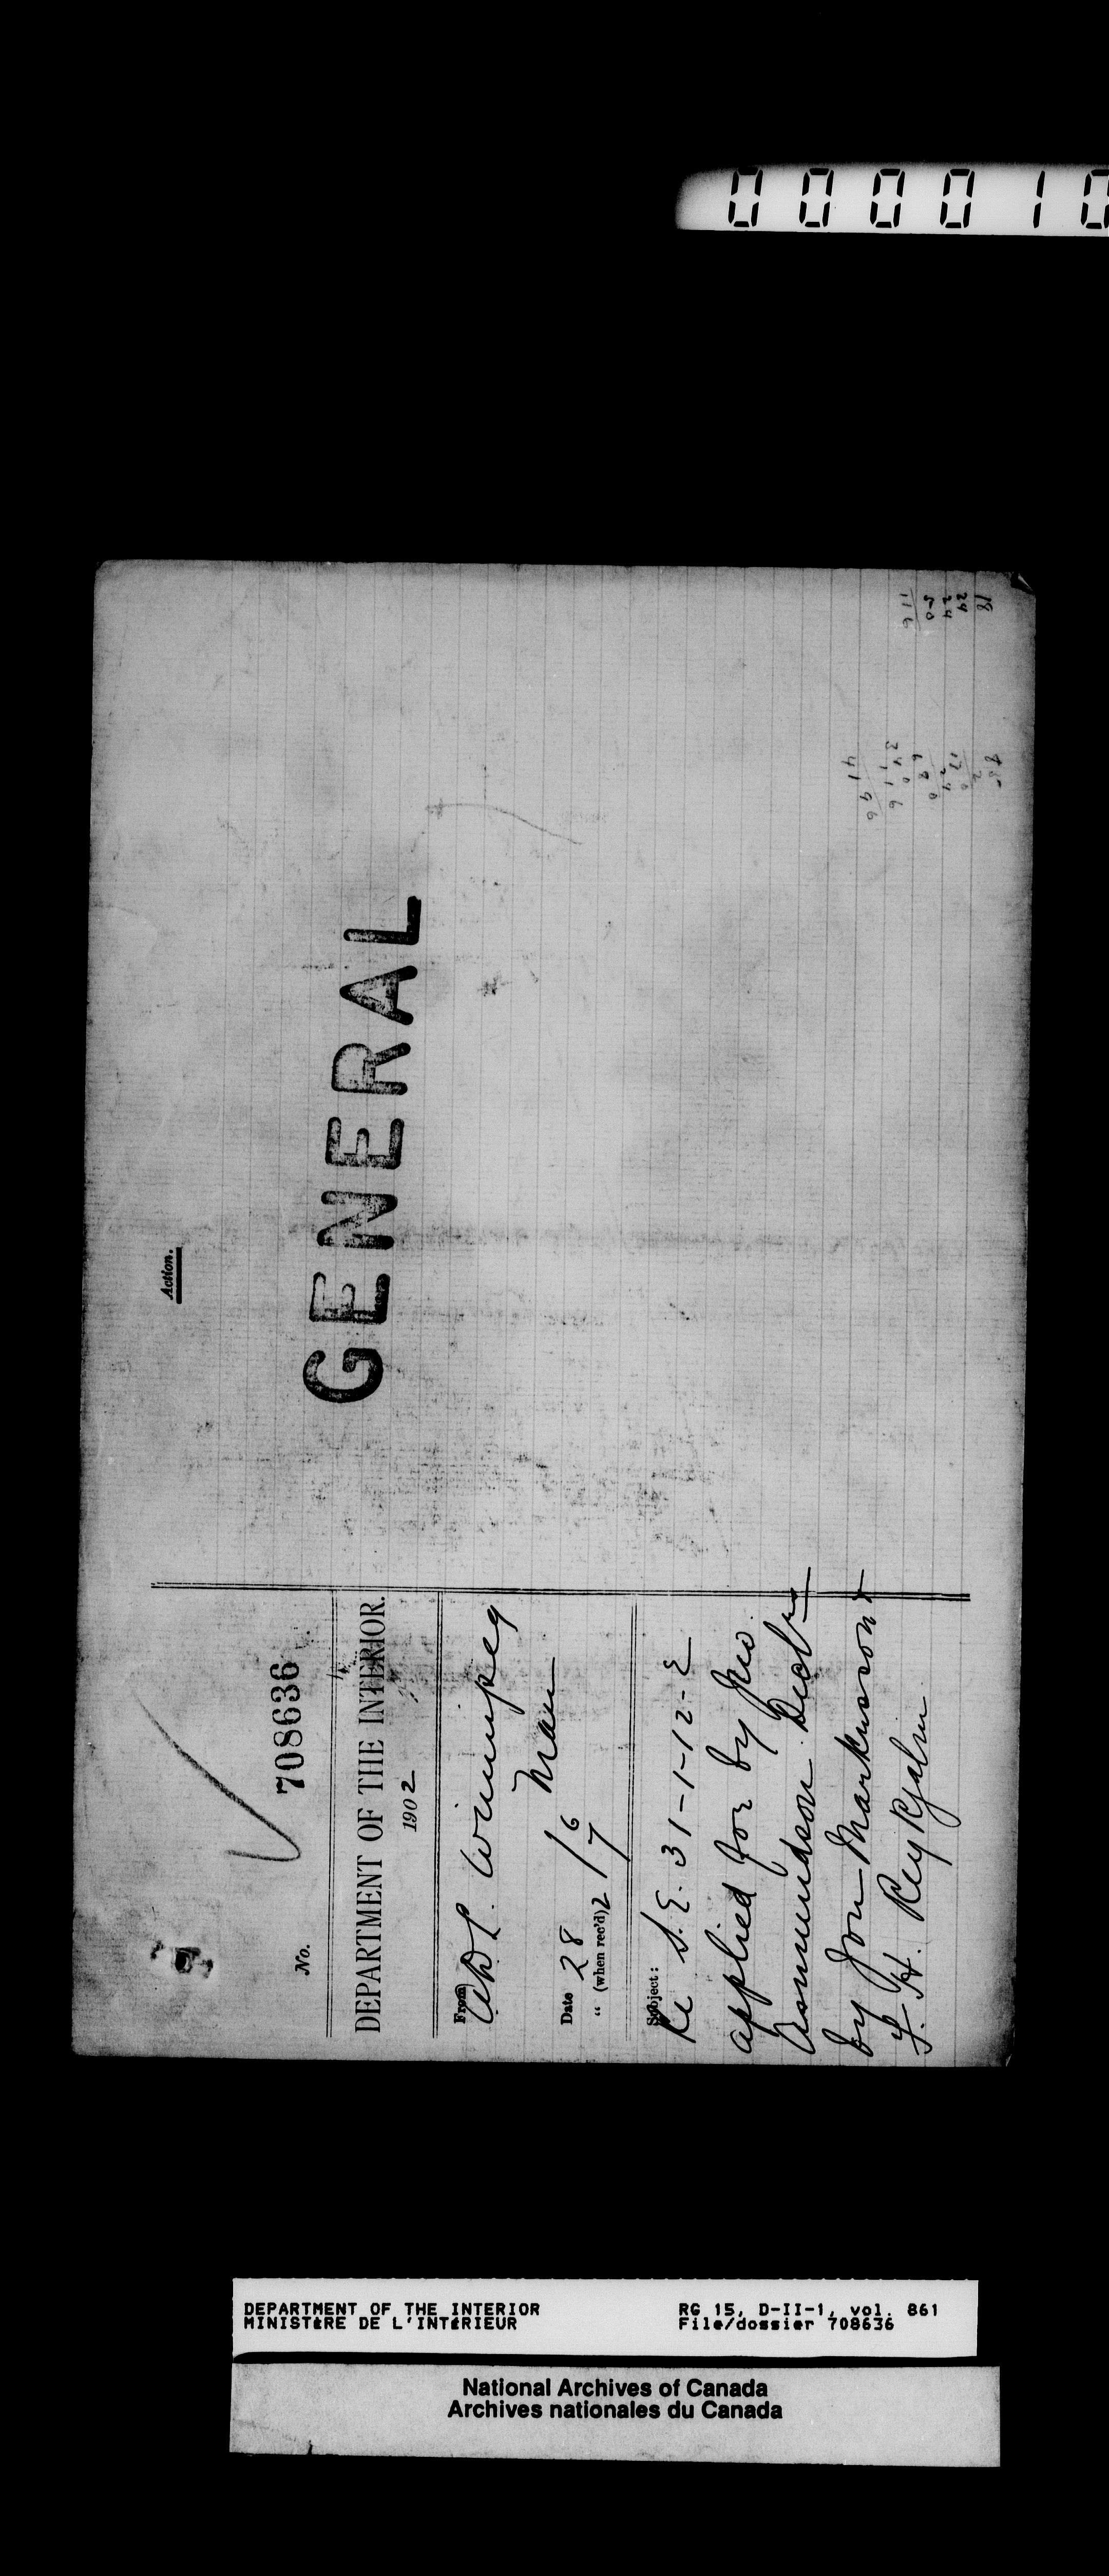 000010
No. 708636
DEPARTMENT OF THE INTERIOR.
1902
From
Winnipeg
Man
Date 28/6
" (when rec'd) 2/7
Subject:
Re S.E. 31-1-12-E
applied for by Geo.
Asmundson. Decls
by Jon Markusson &
F. H. Reykjalin
Action.
GENERAL
18
24
24
50
116
85
2
170
24
680
340
116
4196
DEPARTMENT OF THE INTERIOR
MINISTÈRE DE L'INTÉRIEUR
RG 15, D-II-1, vol. 861
File/dossier 708636
National Archives of Canada
Archives nationales du Canada